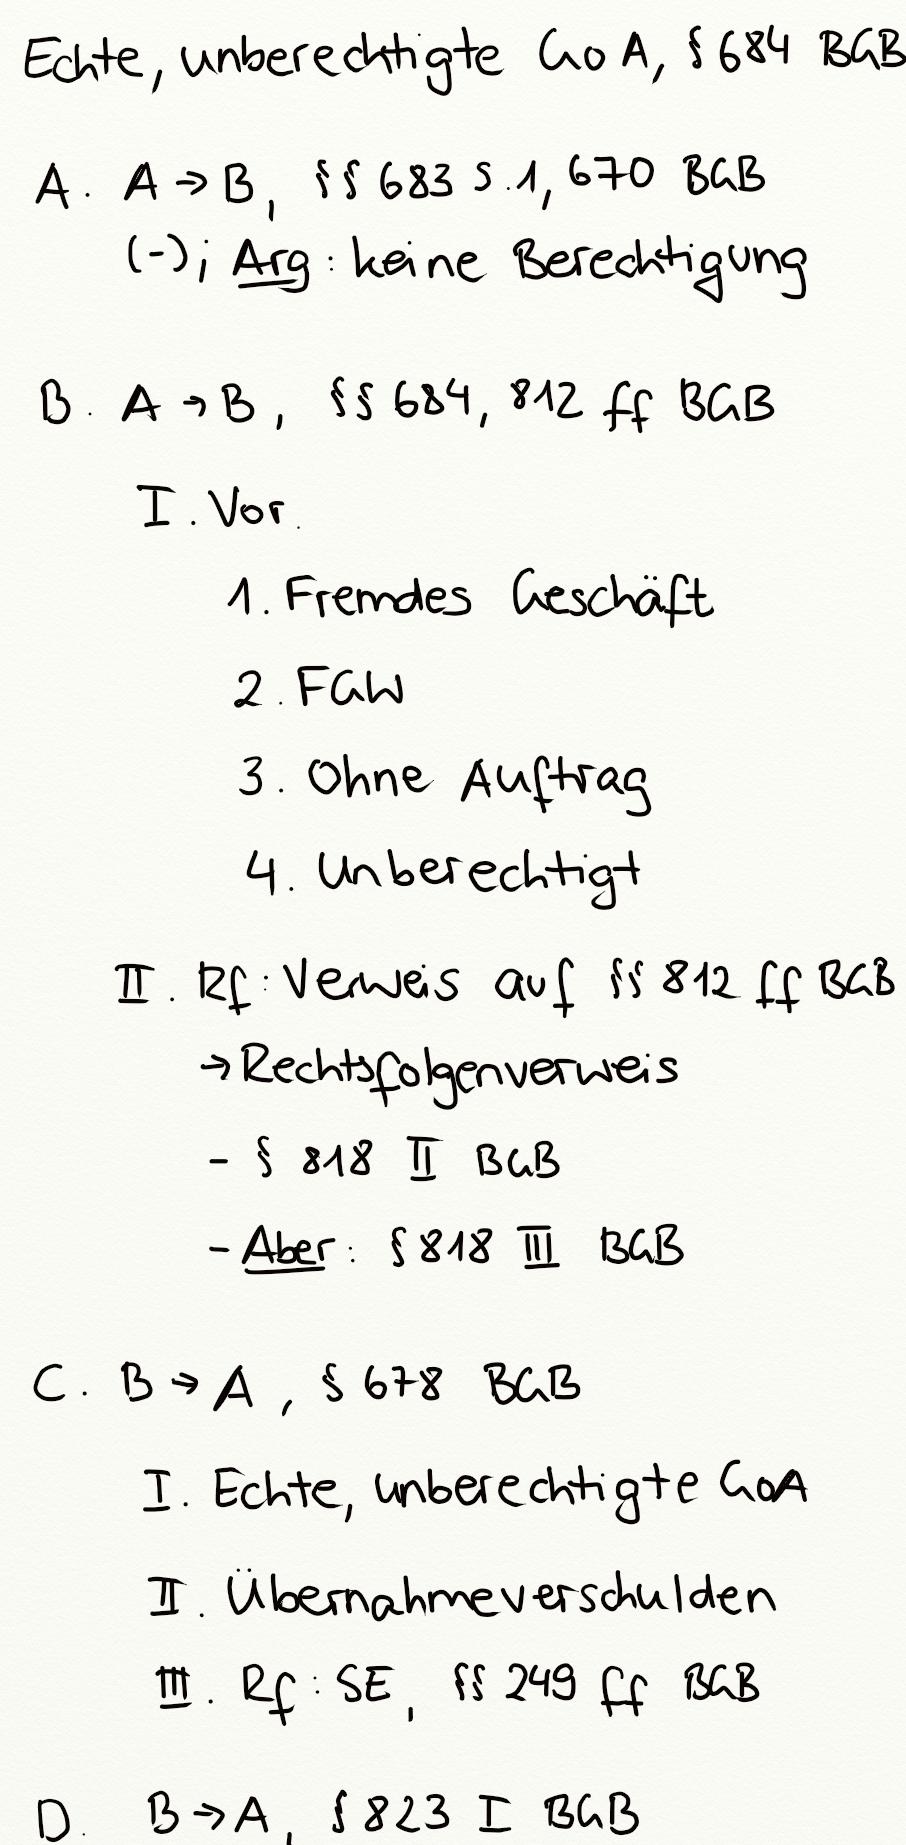 Echte, unberechtigte GoA, § 684 BGB
A. A → B, §§ 683 S.1, 670 BGB
(-); Arg: keine Berechtigung
B. A → B, §§ 684, 812 ff BGB
I. Vor.
1. Fremdes Geschäft
2. FGW
3. Ohne Auftrag
4. Unberechtigt
II. Rf: Verweis auf §§ 812 ff BGB
→ Rechtsfolgenverweis
- § 818 II BGB
- Aber: § 818 III BGB
C. B → A, § 678 BGB
I. Echte, unberechtigte GoA
II. Übernahmeverschulden
III. Rf: SE, §§ 249 ff BGB
D. B → A, § 823 I BGB